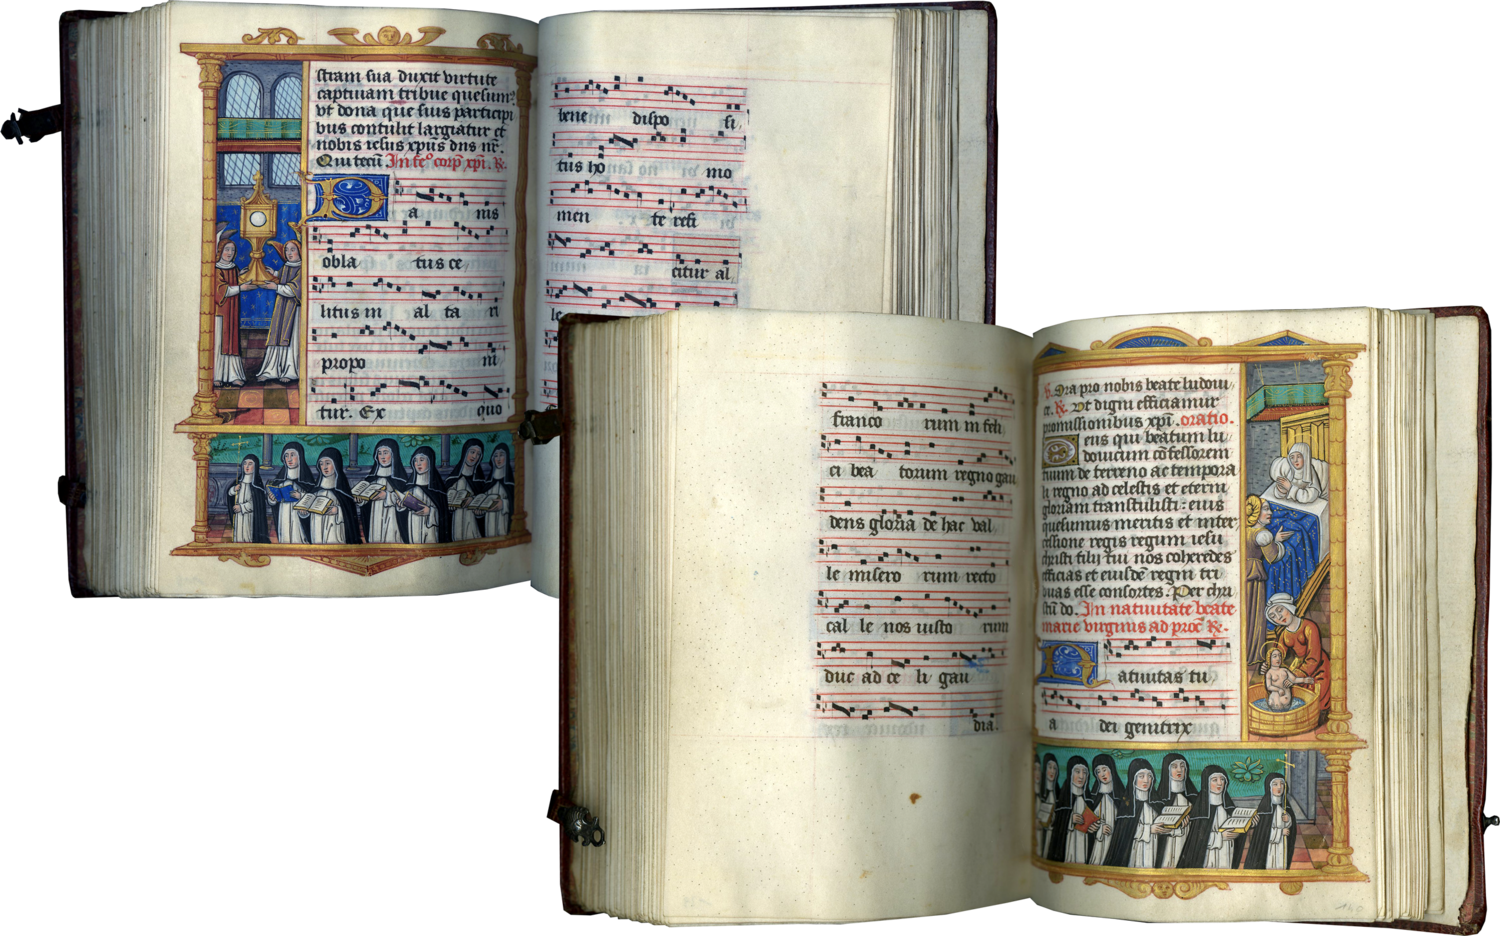 stram sua duxit virtute
captiuam tribue quesum⁹
vt dona que suis participi
bus contulit largiatur et
nobis iesus xp̄us dn̄s nr̄.
Qui tecū In fe° corp̄ xp̄i. R.
Panis
obla tus ce
litus in al ta ri
propo ni
tur. Ex quo
bene dispo si
tus ho mo
men te refi
citur al
le
franco rum in feli
ci bea torum regno gau
dens gloria de hac val
le misero rum recto
cal le nos iusto rum
duc ad ce li gau
dia.
V. Ora pro nobis beate ludoui
ce. R. Vt digni efficiamur
promissionibus xp̄i. oratio.
Deus qui beatum lu
douicum cōfessorem
tuum de terreno ac tempora
li regno ad celestis et eterni
gloriam transtulisti: eius
quesumus meritis et inter
cessione regis regum iesu
christi filii tui nos coheredes
efficias et eiusdē regni tri
buas esse consortes. Per chri
stū do. In natiuitate beate
marie virginis ad proc̄ R.
Natiuitas tu
a dei genitrix
140